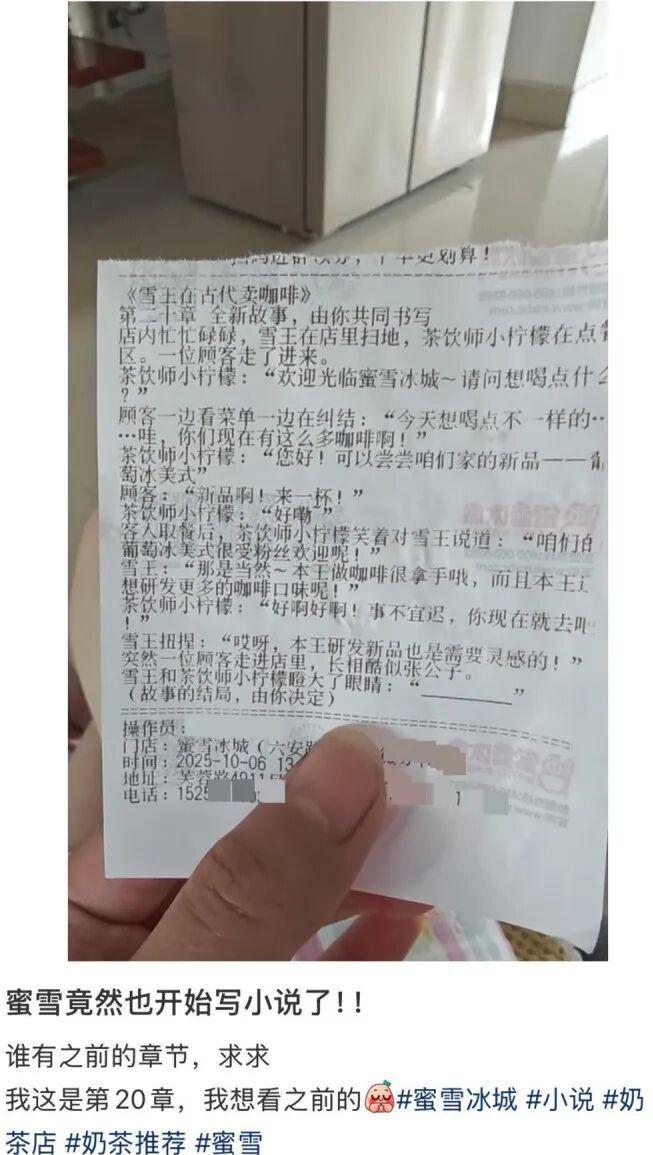 《雪王在古代卖咖啡》
第二十章 全新故事，由你共同书写
店内忙忙碌碌，雪王在店里扫地，茶饮师小柠檬在点餐
区。一位顾客走了进来。
茶饮师小柠檬：“欢迎光临蜜雪冰城～请问想喝点什么
？”
顾客一边看菜单一边在纠结：“今天想喝点不一样的…
…哇，你们现在有这么多咖啡啊！”
茶饮师小柠檬：“您好！可以尝尝咱们家的新品——葡
萄冰美式”
顾客：“新品啊！来一杯！”
茶饮师小柠檬：“好嘞”
客人取餐后，茶饮师小柠檬笑着对雪王说道：“咱们的
葡萄冰美式很受粉丝欢迎呢！”
雪王：“那是当然～本王做咖啡很拿手哦，而且本王还
想研发更多的咖啡口味呢！”
茶饮师小柠檬：“好啊好啊！事不宜迟，你现在就去吧
！”
雪王扭捏：“哎呀，本王研发新品也是需要灵感的！”
突然一位顾客走进店里，长相酷似张公子。
雪王和茶饮师小柠檬瞪大了眼睛：“________”
（故事的结局，由你决定）
操作员：
门店：蜜雪冰城（六安路
时间：2025-10-06 13
地址：芙蓉路4911号
电话：1525
1
蜜雪竟然也开始写小说了！！
谁有之前的章节，求求
我这是第20章，我想看之前的#蜜雪冰城 #小说 #奶
茶店 #奶茶推荐 #蜜雪